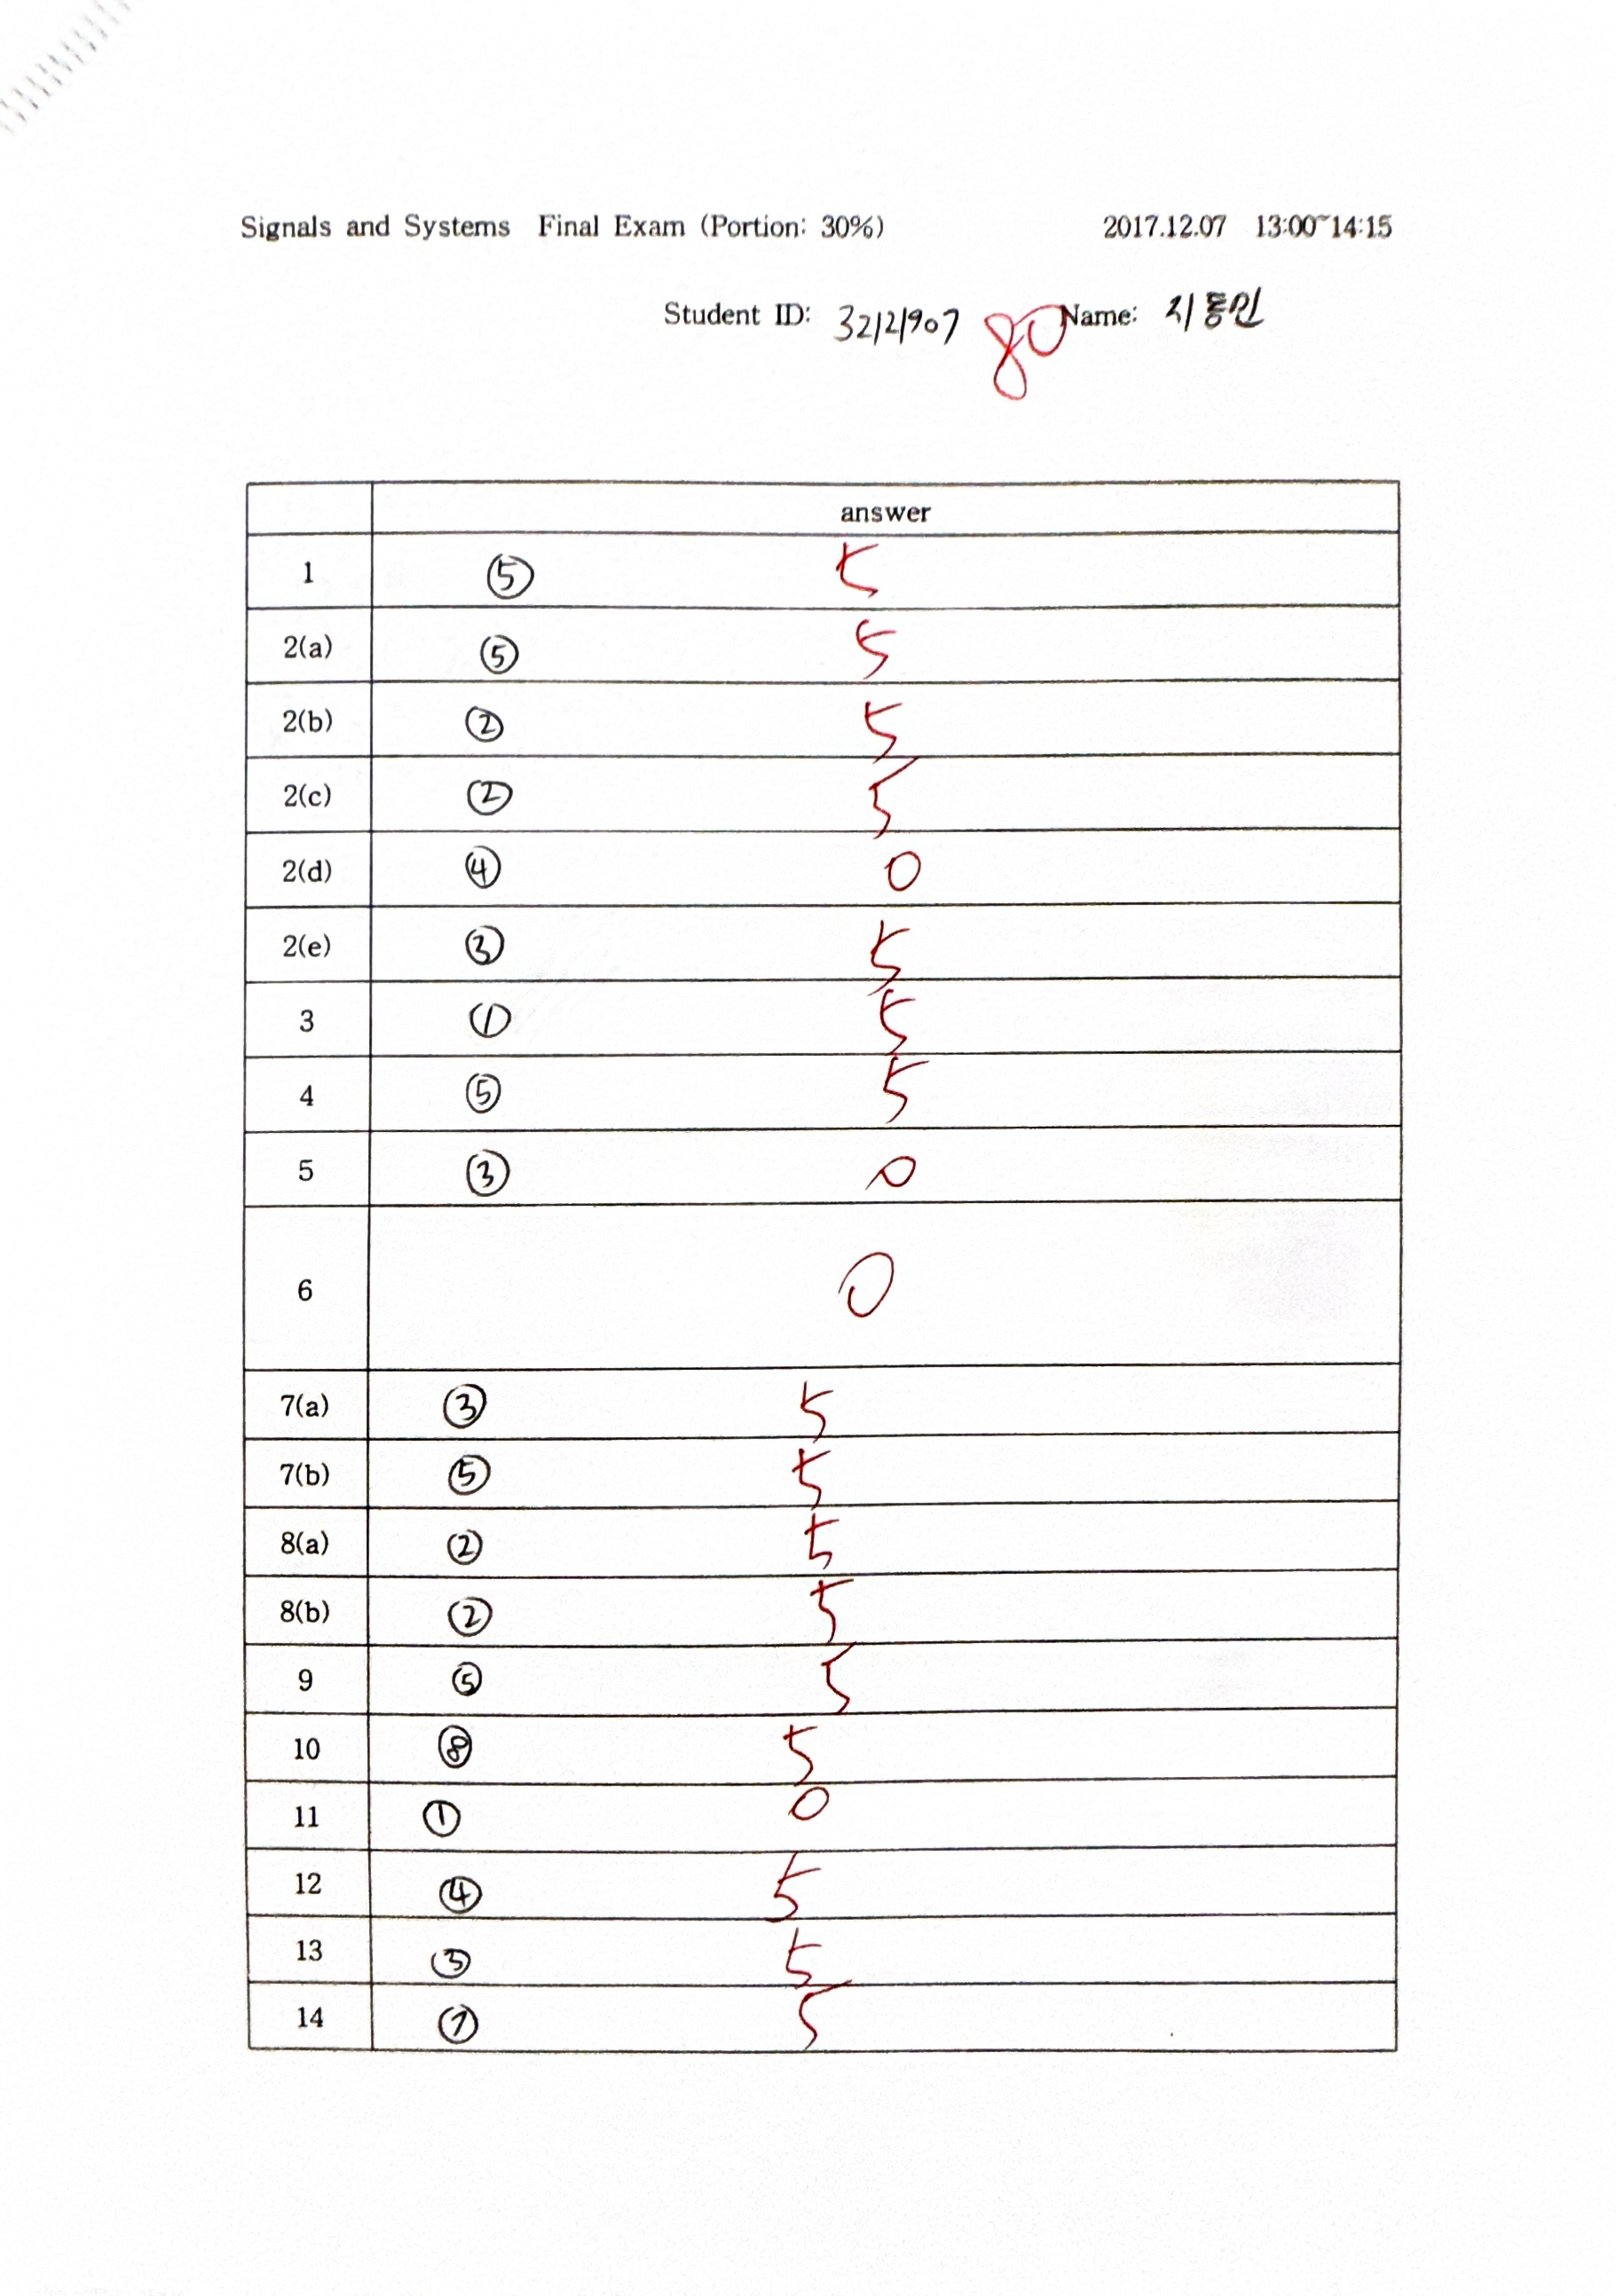 Signals and Systems Final Exam (Portion: 30%) 2017.12.07 13:00~14:15
Student ID: 32121907 80 Name: 지동민
answer
1 ⑤ 5
2(a) ⑤ 5
2(b) ② 5
2(c) ② 5
2(d) ④ 0
2(e) ③ 5
3 ① 5
4 ⑤ 5
5 ③ 0
6 0
7(a) ③ 5
7(b) ⑤ 5
8(a) ② 5
8(b) ② 5
9 ⑤ 5
10 ⑧ 5
11 ① 0
12 ④ 5
13 ③ 5
14 ⑦ 5